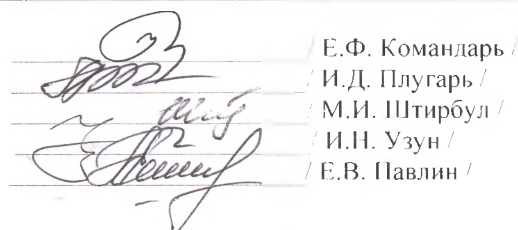 / Е.Ф. Командарь /
/ И.Д. Плугарь /
/ М.И. Штирбул /
/ И.Н. Узун /
/ Е.В. Павлин /